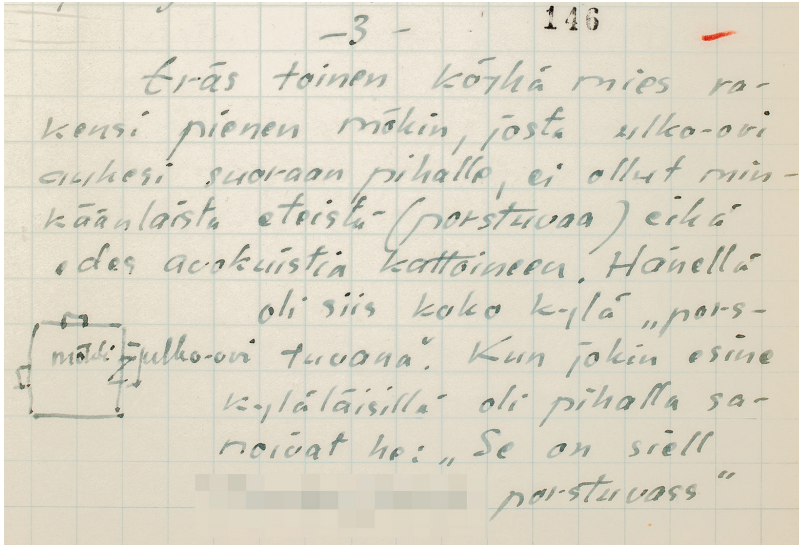 -3-
146
Eräs toinen köyhä mies ra-
kensi pienen mökin, josta ulko-ovi
aukesi suoraan pihalle, ei ollut min-
käänlaista eteistä (porstuvaa) eikä
edes avokuistia kattoineen. Hänellä
oli siis koko kylä „pors-
mökki ulko-ovi
tuvana”. Kun jokin esine
kyläläisillä oli pihalla sa-
noivat he: „Se on siell
porstuvass”